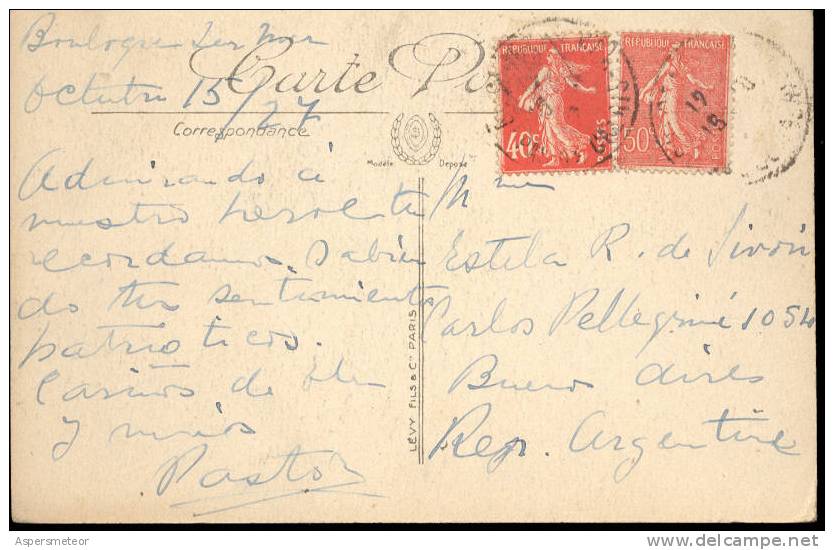 Boulogne Sur Mer
Octubre 15/27
Carte Po
Correspondance
Modèle Déposé
Admirando a
nuestro heroe te
recordamos. Sabien
do tus sentimientos
patrioticos.
Cariños de Elena
y mios
Pastor
LÉVY FILS & Cie PARIS
RÉPUBLIQUE FRANÇAISE
40c
POSTES
RÉPUBLIQUE FRANÇAISE
50c
Mme
Estela R. de
Carlos Pellegrini 1054
Buenos Aires
Rep. Argentine
Aspersmeteor
delcampe.net